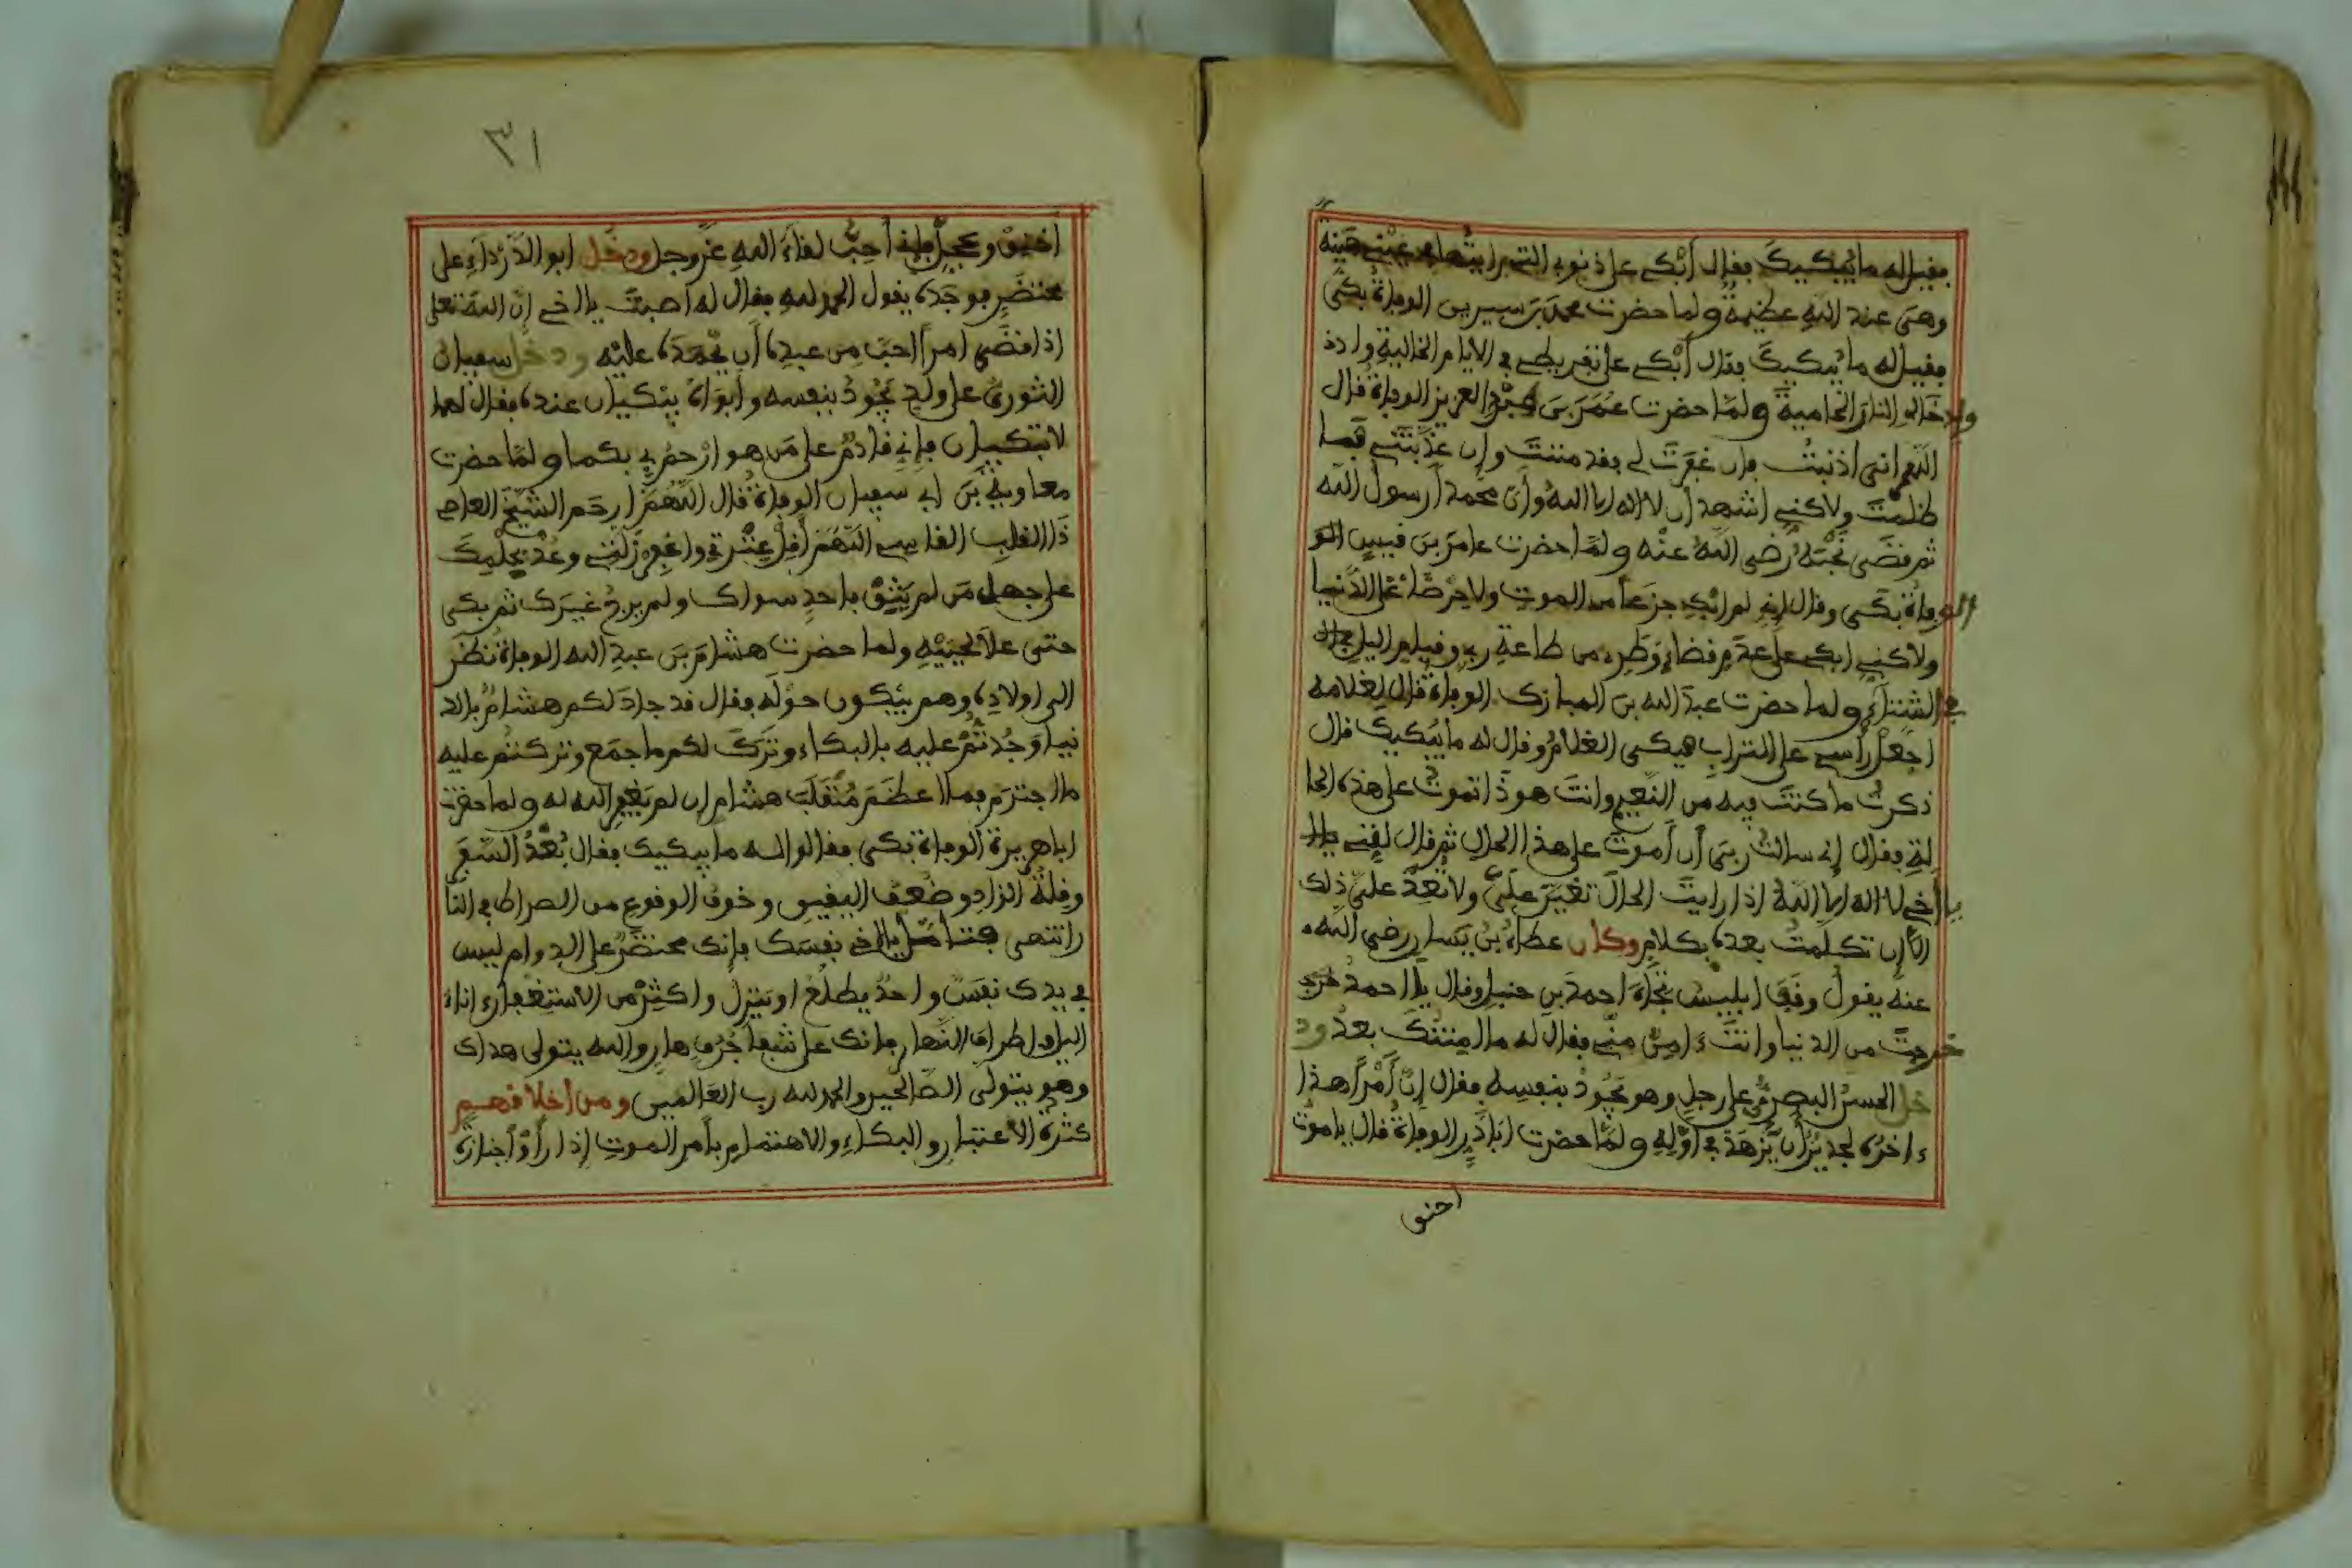 فقيل له ما يُبكيكَ فقال أبْكي على ذنوبي التي رايتُها في عيْني هَيِّنة
وهي عند اللهِ عظيمةٌ ولما حضرت محمدَ بنَ سيرين الوفاةُ بكى
فقيل له ما يُبكيكَ فقال أَبْكي على تفريطي في الايام الخاليةِ واد
وادخالي النارَ الحاميةَ ولمّا حضرت عُمَرَ بنَ عبْدِ العزيز الوفاةُ قال
اللهم اني اذنبْتُ فإن غفَرتَ لي فقد مننتَ وإن عذَّبْتَني فما
ظلمْتَ ولاكني اشهد أن لا اله الا اللهُ وأن محمدا رسول الله
ثم قضَى نحْبَهُ رضى اللهُ عنْه ولمّا حضرت عامرَ بنَ قيسٍ الو
الوفاةُ بكى وقال إني لم ابْكِ جزَعاً من الموتِ ولا حِرْصًا على الدُّنيا
ولاكني ابكي على عدَمِ قضاءِ وَطَرِي من طاعةِ ربي وقيامِ الليلِ في ال
في الشتاءِ ولما حضرت عبدَ الله بنَ المبارك الوفاةُ قال لِغلامه
اجعلْ رأسي على الترابِ فبكى الغلامُ وقال له ما يُبكيك قال
ذكرتُ ما كنتَ فيه من النَّعيمِ وانتَ هوذَا تموتُ على هذه الحا
لةِ فقال إني سالتُ ربي أن أموتَ على هذا الحال ثم قال لقِّني يا ا
يا أخي لا اله إلا اللهُ اذا رايتَ الحالَ تغيَّر عليَّ ولا تُعِدْ عليَّ ذلك
الا إن تكلّمتُ بعدَه بكلامٍ وكان عطاءُ بنُ يَسارٍ رضي الله
عنه يقولُ وقفَ ابليسُ تجاهَ احمدَ بنِ حنبلٍ وقال يا احمدُ خرج
خرجتَ من الدنيا وانتَ ءامِنٌ منّي فقال له ما امِنتُكَ بعدُ ود
خل الحسنُ البصريُّ على رجلٍ وهو يَجُودُ بنفسِه فقال إنّ أمْراً هذا
ءاخرُه لجديرٌ أن يُزهَدَ في أوّلِهِ ولمّا حضرت اباذَرٍّ الوفاةُ قال يا موتُ
اخنق
٣١
أخنِقْ وعجِّلْ فإني أحِبُّ لقاءَ اللهِ عزّ وجل ودخل ابو الدّرْداءِ على
محتضَرٍ فوجَدَه يقول الحمد للهِ فقال له اصبتَ يا اخي إن اللهَ تعلى
اذا قضَى امراً احبّ مِن عبدِه أن يَحْمَدَه عليْه ودخل سفيان
الثوريُّ على ولدٍ يَجُودُ بنفسه وأبَوَاهُ يبْكيان عنده فقال لهما
لا تبكيان فإني قادمٌ على مَن هو ارْحمُ بي بكما ولمّا حضرت
معاويةَ بنَ ابي سفيان الوفاةُ قال اللّهُمّ ارحم الشيْخَ العاصِ
ذا القلبِ القاسي اللهم أقِلْ عثْرتي واغفِرْ زلّتي وعُدْ بحلْمِكَ
على جهل مَن لم يَثِقْ باحدٍ سواك ولم يرجُ غيرَك ثم بكى
حتى علا نحيبُه ولما حضرت هشامَ بنَ عبدِ الله الوفاةُ نظَر
الى اولادِه وهم يبْكون حوْلَه فقال قد جادَ لكم هشامٌ بالد
نيا وَجُدتُّمْ عليه بالبكاء وتَرَكَ لكم ما جمَع وتركتُم عليه
ما اجترَم فما اعظَمَ مُنْقَلَبَ هشام إن لم يَغفِرِ الله له ولما حضرت
اباهريرة الوفاة بكى فقالوا له ما يبكيك فقال بُعْدُ السَّفَرِ
وقلةُ الزادِ وضُعف اليقينِ وخوفُ الوقوعِ من الصراط في النا
ر انتهى فتامّل يا اخي نفسَك فإنك محتضَرٌ على الدوام ليس
في يدك نفَسٌ واحدٌ يطلُعُ او ينزلُ واكثِرْ من الاستغفارِ ءاناءَ
الليلِ واطرافَ النّهارِ فانك على شفا جُرُفٍ هارٍ والله يتولى هداك
وهو يتولّى الصّالحين والحمد لله ربّ العالمين ومن أخلاقهم
كثرةُ الاعتبارِ والبكاءِ والاهتمامِ بأمر الموتِ إذا رأوْا جنازةً